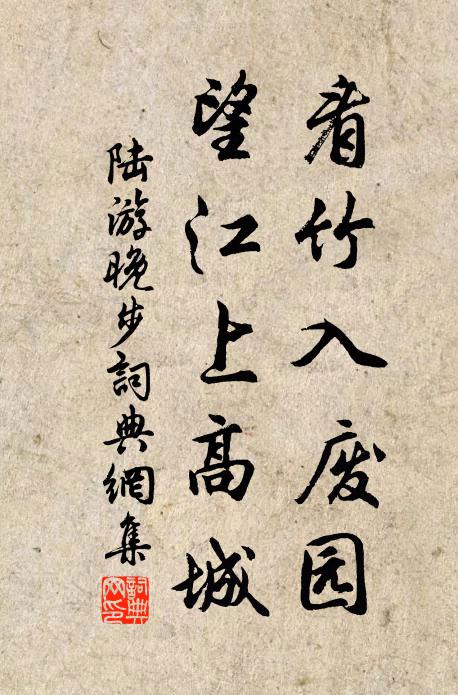 看竹入废园
望江上高城
陆游晚步詞典網集
詞典
网印